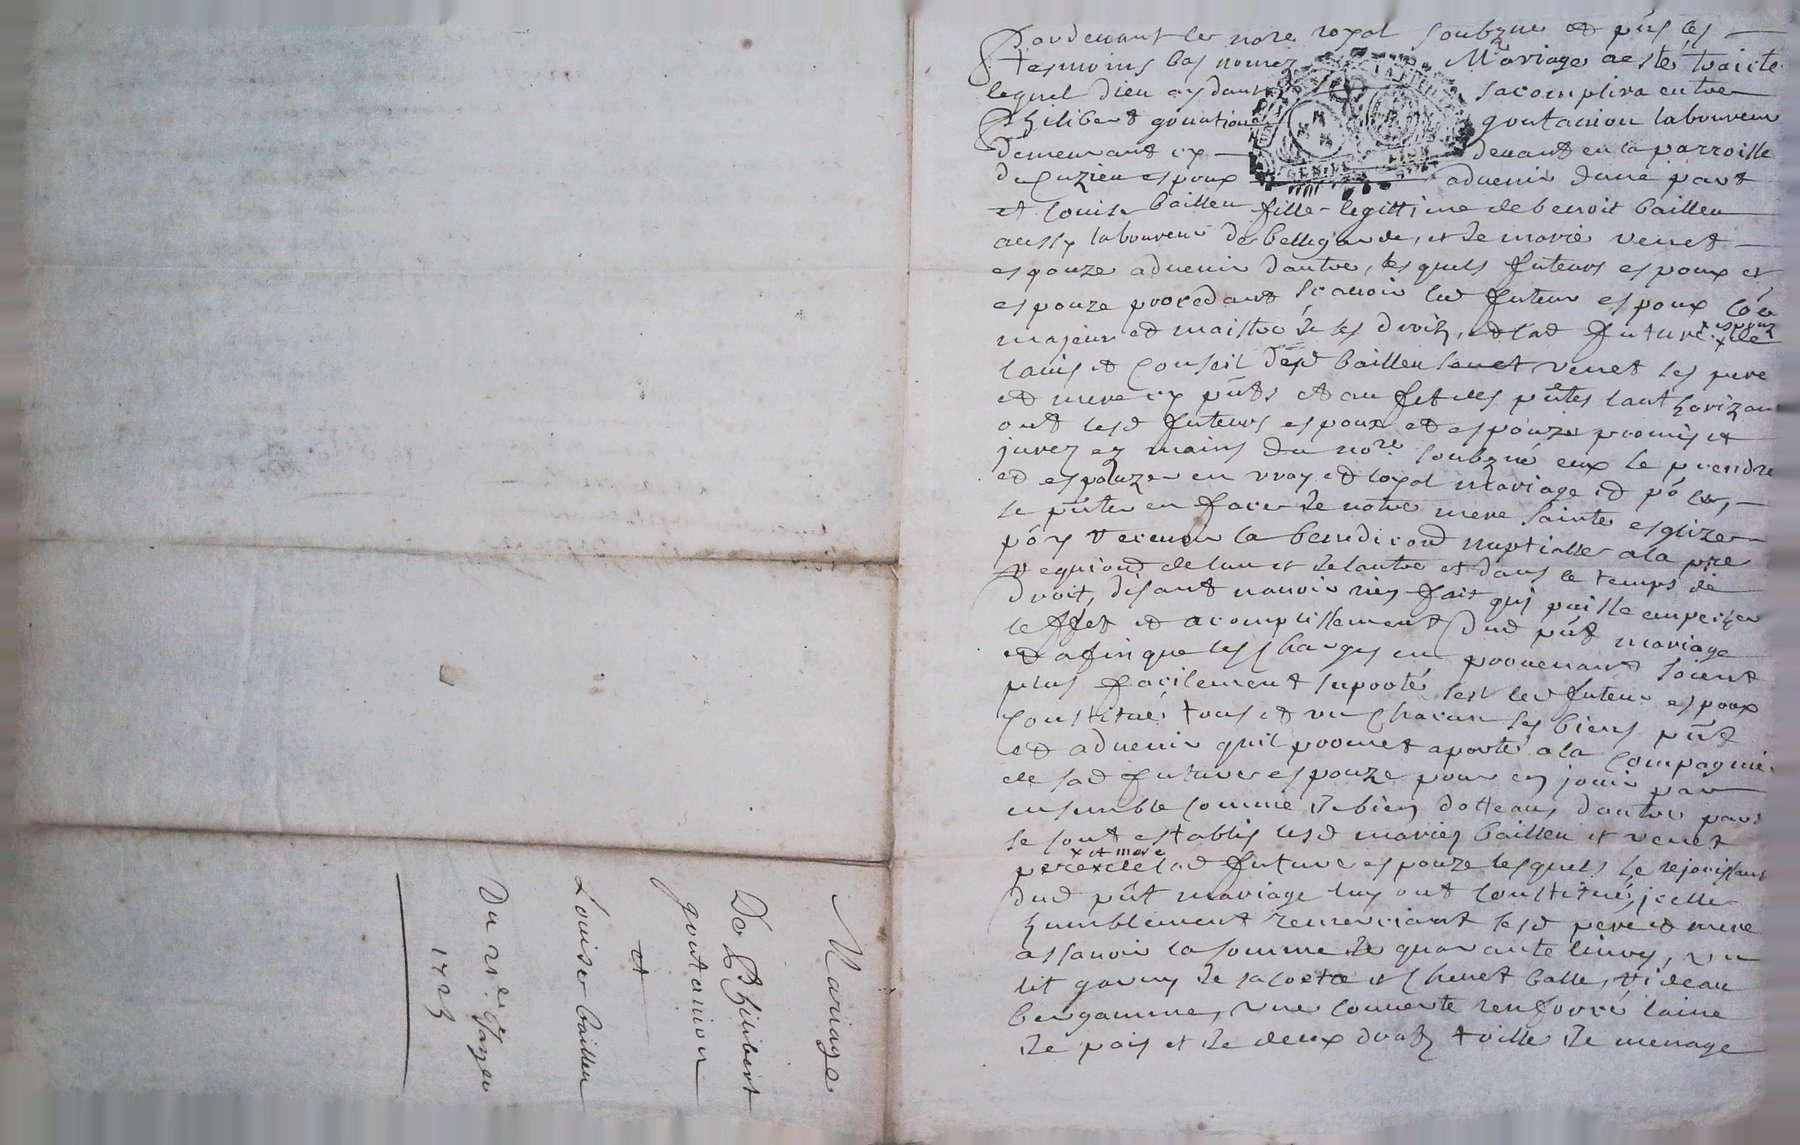 Pardevant le no.re royal soubzne et pñs les
tesmoins bas nomez Mariage a esté traicté
lequel Dieu aydant sacomplira entre
Philibert gontanion laboureur
demeurant cy devant en la parroisse
de Cuzieu espoux advenir dune part
et Louise bailleu fille legittime de benoit bailleu
aussy laboureur de bellegarde, et de marie venet
espouze advenir dautre, lesquels futeurs espoux et
espouze procedant scavoir led futeur espoux co͞e
majeur et maistre de ses droits, et lad future espouze de
lavis et Conseil desd bailleu et venet ses pere
et mere cy pñts et au fet des pñtes lauthorizant
ont lesd futeurs espoux et espouze promis et
jurez ez mains du no.re soubzné eux se prendre
et espouzer en vray et loyal mariage et po ce,
se pñter en face de notre mere sainte esglize
po y recevoir la benediction nuptialle a la p.re
requion de lun et de lautre et dans le temps de
droit, disant navoir rien fait qui puisse empecher
leffet et acomplissement dud pñt mariage
et afin que les charges en provenant soient
plus facilement suporté sest led futeur espoux
Constitué tous et un chacun ses biens pñt
et advenir quil promet aporté a la compagnie
de sad future espouze pour en jouir par
ensemble comme de bien dotteaux dautre part
se sont establis lesd mariez bailleu et venet
pere et mere de lad future espouze lesquels se rejouissant
dud pñt mariage luy ont constitué, icelle
humblement remerciant lesd pere et mere
assavoir la somme de quarante livres, un
lit garny de sa coetre et chevet balle, rideau
bergamme, une couverte renforcé laine
de pais et de deux drapz toille de menage
Mariage
De Philibert
gontanion
et
Louise bailleu
Du